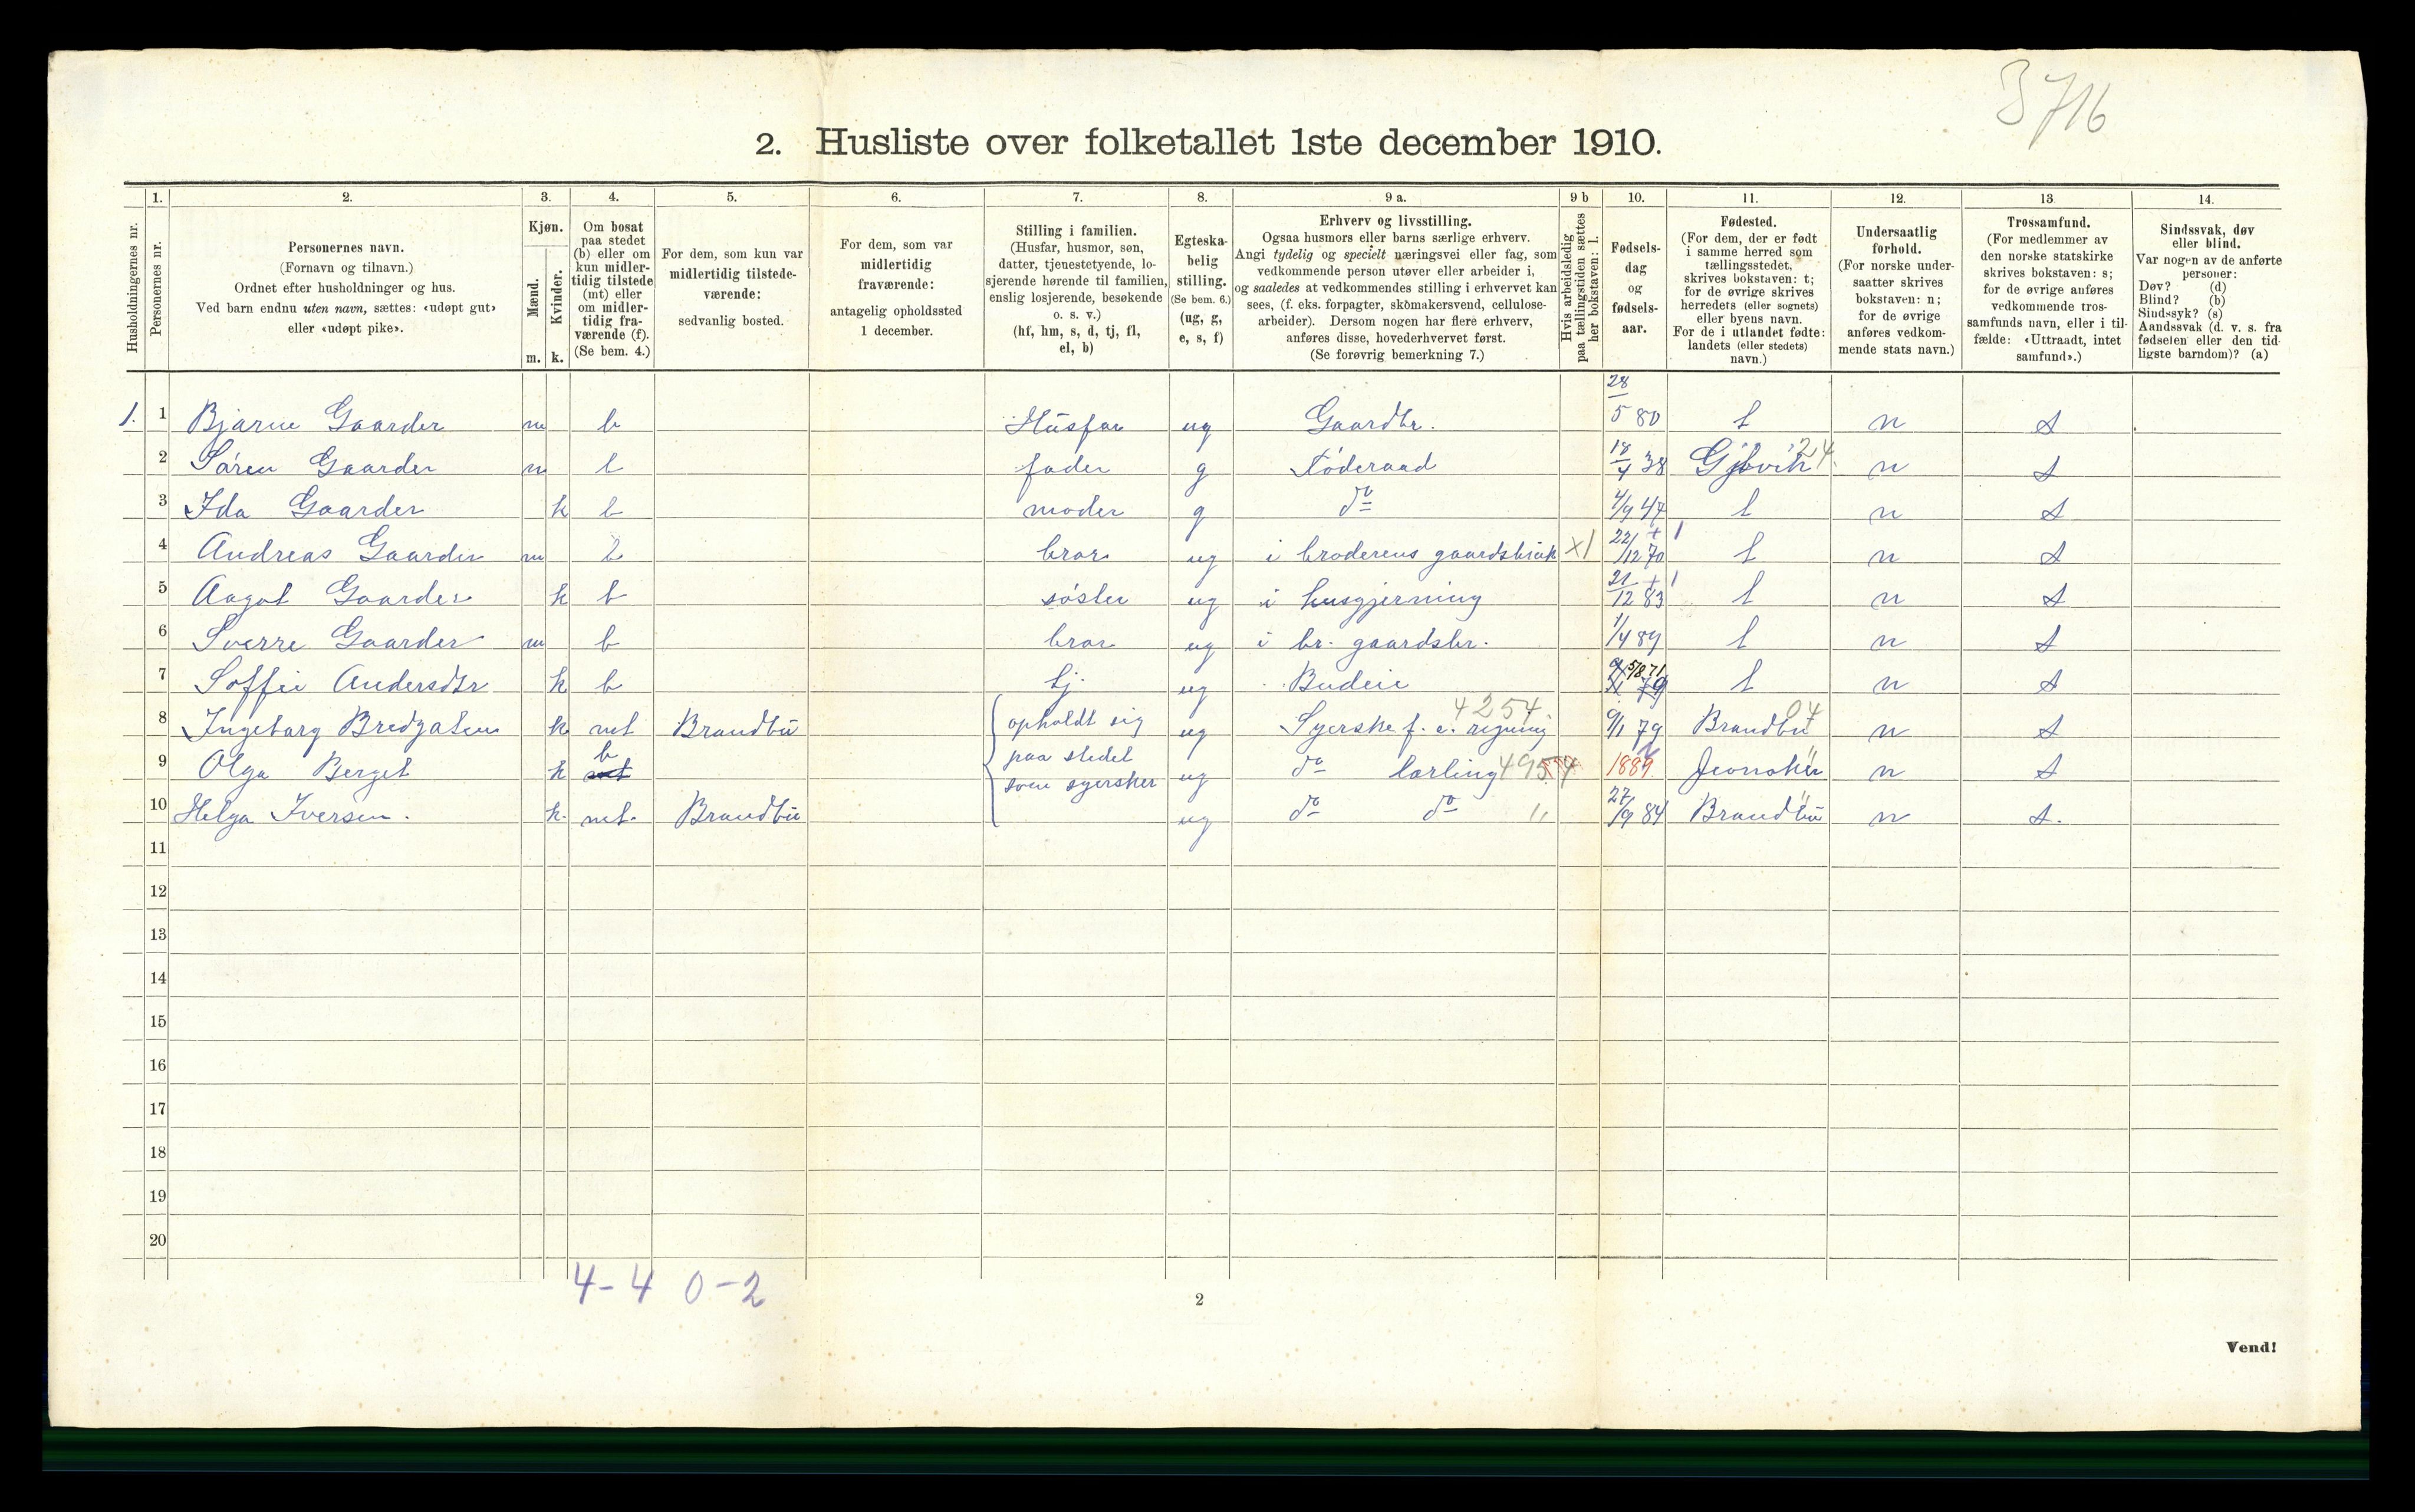 3716
2. Husliste over folketallet 1ste december 1910.
Husholdningernes nr.
1.
Personernes nr.
2.
Personernes navn.
(Fornavn og tilnavn.)
Ordnet efter husholdninger og hus.
Ved barn endnu uten navn, sættes: «udøpt gut»
eller «udøpt pike».
3.
Kjøn.
Mænd.
Kvinder.
m. k.
4.
Om bosat
paa stedet
(b) eller om
kun midler-
tidig tilstede
(mt) eller
om midler-
tidig fra-
værende (f).
(Se bem. 4.)
5.
For dem, som kun var
midlertidig tilstede-
værende:
sedvanlig bosted.
6.
For dem, som var
midlertidig
fraværende:
antagelig opholdssted
1 december.
7.
Stilling i familien.
(Husfar, husmor, søn,
datter, tjenestetyende, lo-
sjerende hørende til familien,
enslig losjerende, besøkende
o. s. v.)
(hf, hm, s, d, tj, fl,
el, b)
8.
Egteska-
belig
stilling.
(Se bem. 6.)
(ug, g,
e, s, f)
9 a.
Erhverv og livsstilling.
Ogsaa husmors eller barns særlige erhverv.
Angi tydelig og specielt næringsvei eller fag, som
vedkommende person utøver eller arbeider i,
og saaledes at vedkommendes stilling i erhvervet kan
sees, (f. eks. forpagter, skomakersvend, cellulose-
arbeider). Dersom nogen har flere erhverv,
anføres disse, hovederhvervet først.
(Se forøvrig bemerkning 7.)
9 b
Hvis arbeidsledig
paa tællingstiden sættes
her bokstaven: l.
10.
Fødsels-
dag
og
fødsels-
aar.
11.
Fødested.
(For dem, der er født
i samme herred som
tællingsstedet,
skrives bokstaven: t;
for de øvrige skrives
herredets (eller sognets)
eller byens navn.
For de i utlandet fødte:
landets (eller stedets)
navn.)
12.
Undersaatlig
forhold.
(For norske under-
saatter skrives
bokstaven: n;
for de øvrige
anføres vedkom-
mende stats navn.)
13
Trossamfund.
(For medlemmer av
den norske statskirke
skrives bokstaven: s;
for de øvrige anføres
vedkommende tros-
samfunds navn, eller i til-
fælde: «Uttraadt, intet
samfund».)
14.
Sindssvak, døv
eller blind.
Var nogen av de anførte
personer:
Døv? (d)
Blind? (b)
Sindssyk? (s)
Aandssvak (d. v. s. fra
fødselen eller den tid-
ligste barndom)? (a)
1. 1 Bjarne Gaarder m b Husfar ug Gaardbr. 28/5 80 t n s
2 Søren Gaarder m b fader g Føderaad 18/4 38 Gjøvik 24 n s
3 Ida Gaarder k b moder g do 4/9 47 t n s
4 Andreas Gaarder m b bror ug i broderens gaardsbruk x1 22/12 70 + 1 t n s
5 Aagot Gaarder k b søster ug i husgjerning 21/12 83 + 1 t n s
6 Sverre Gaarder m b bror ug i br. gaardsbr. 1/4 89 t n s
7 Soffie Andersdtr k b tj ug Budeie 5/8 71 t n s
8 Ingeborg Bredgatten k mt Brandbu opholdt sig ug Syerske f. e. regning 4254 9/1 79 Brandbu 04 n s
9 Olga Berget k b mt paa stedet ug do lærling 4954 1889 Jevnaker n s
som syersker
10 Helga Iversen. k. mt. Brandbu ug do do " 27/9 84 Brandbu n s.
11
12
13
14
15
16
17
18
19
20
4-4 0-2
2
Vend!